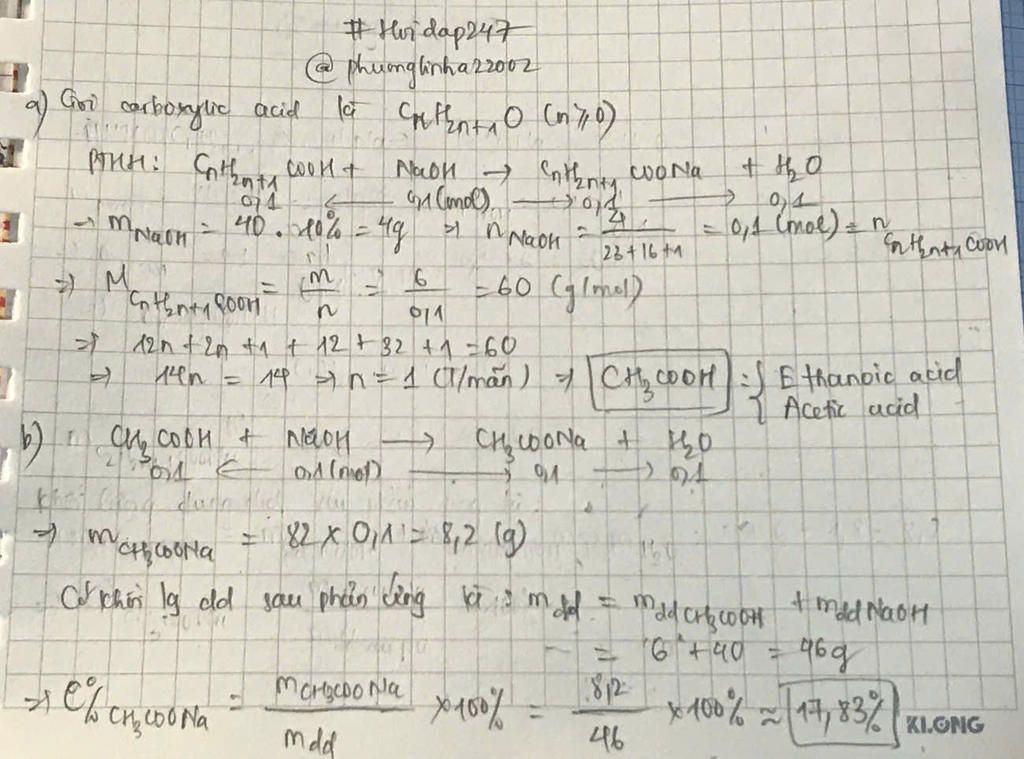 # Hoidap247
@ phuonglinha22002
a) Gọi carboxylic acid là CnH2n+1O (n ≥ 0)
PTHH: CnH2n+1COOH + NaOH → CnH2n+1COONa + H2O
0,1 ← 0,1 (mol) → 0,1 → 0,1
→ mNaOH = 40 . 10% = 4g ⇒ nNaOH = 4/(23+16+1) = 0,1 (mol) = nCnH2n+1COOH
⇒ MCnH2n+1COOH = m/n = 6/0,1 = 60 (g/mol)
⇒ 12n + 2n + 1 + 12 + 32 + 1 = 60
⇒ 14n = 14 ⇒ n = 1 (T/mãn) ⇒ CH3COOH : { Ethanoic acid
Acetic acid
b) CH3COOH + NaOH → CH3COONa + H2O
0,1 ← 0,1 (mol) → 0,1 → 0,1
⇒ mCH3COONa = 82 x 0,1 = 8,2 (g)
Có khối lg dd sau phản ứng là : mdd = mddCH3COOH + mddNaOH
= 6 + 40 = 46g
→ C%CH3COONa = mCH3COONa/mdd x 100% = 8,2/46 x 100% ≈ 17,83%
KLONG